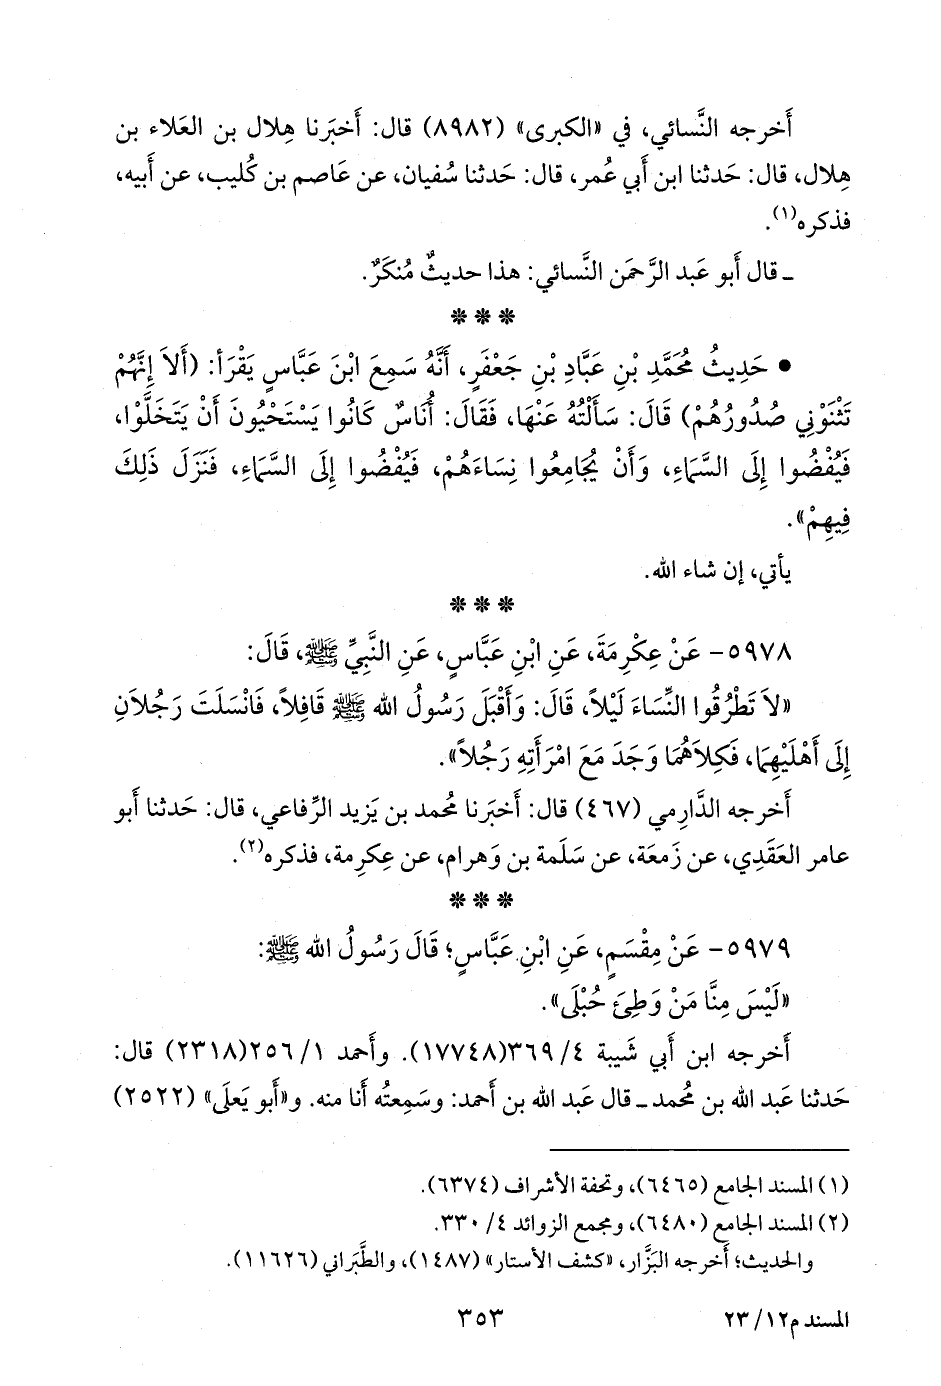 أَخرجه النَّسائي، في «الكبرى» (٨٩٨٢) قال: أَخبَرنا هِلال بن العَلاء بن
هِلال، قال: حَدثنا ابن أَبي عُمر، قال: حَدثنا سُفيان، عن عَاصم بن كُليب، عن أَبيه،
فذكره(١).
ـ قال أَبو عَبد الرَّحمَن النَّسائي: هذا حديثٌ مُنكَرٌ.
* * *
• حَدِيثُ مُحَمَّدِ بْنِ عَبَّادِ بْنِ جَعْفَرٍ، أَنَّهُ سَمِعَ ابْنَ عَبَّاسٍ يَقْرَأ: (أَلاَ إِنَّهُمْ
تَثْنَوْنِي صُدُورُهُمْ) قَالَ: سَأَلْتُهُ عَنْهَا، فَقَالَ: أُنَاسٌ كَانُوا يَسْتَحْيُونَ أَنْ يَتَخَلَّوْا،
فَيُفْضُوا إِلَى السَّمَاءِ، وَأَنْ يُجَامِعُوا نِسَاءَهُمْ، فَيُفْضُوا إِلَى السَّمَاءِ، فَنَزَلَ ذَلِكَ
فِيهِمْ».
يأتي، إن شاء الله.
* * *
٥٩٧٨- عَنْ عِكْرِمَةَ، عَنِ ابْنِ عَبَّاسٍ، عَنِ النَّبِيِّ ﷺ، قَالَ:
«لاَ تَطْرُقُوا النِّسَاءَ لَيْلاً، قَالَ: وَأَقْبَلَ رَسُولُ الله ﷺ قَافِلاً، فَانْسَلَتَ رَجُلاَنِ
إِلَى أَهْلَيْهِمَا، فَكِلاَهُمَا وَجَدَ مَعَ امْرَأَتِهِ رَجُلاً».
أَخرجه الدَّارِمي (٤٦٧) قال: أَخبَرنا مُحمد بن يَزيد الرِّفاعي، قال: حَدثنا أَبو
عامر العَقَدِي، عن زَمعَة، عن سَلَمة بن وَهرام، عن عِكرِمة، فذكره(٢).
* * *
٥٩٧٩- عَنْ مِقْسَمٍ، عَنِ ابْنِ عَبَّاسٍ؛ قَالَ رَسُولُ الله ﷺ:
«لَيْسَ مِنَّا مَنْ وَطِئَ حُبْلَى».
أَخرجه ابن أَبي شَيبة ٤/ ٣٦٩(١٧٧٤٨). وأَحمد ١/ ٢٥٦(٢٣١٨) قال:
حَدثنا عَبد الله بن مُحمد ـ قال عَبد الله بن أَحمد: وسَمِعتُه أَنا منه. و«أَبو يَعلَى» (٢٥٢٢)
(١) المسند الجامع (٦٤٦٥)، وتحفة الأشراف (٦٣٧٤).
(٢) المسند الجامع (٦٤٨٠)، ومجمع الزوائد ٤/ ٣٣٠.
والحديث؛ أَخرجه البَزَّار، «كشف الأستار» (١٤٨٧)، والطَّبَراني (١١٦٢٦).
المسند م١٢/ ٢٣
٣٥٣